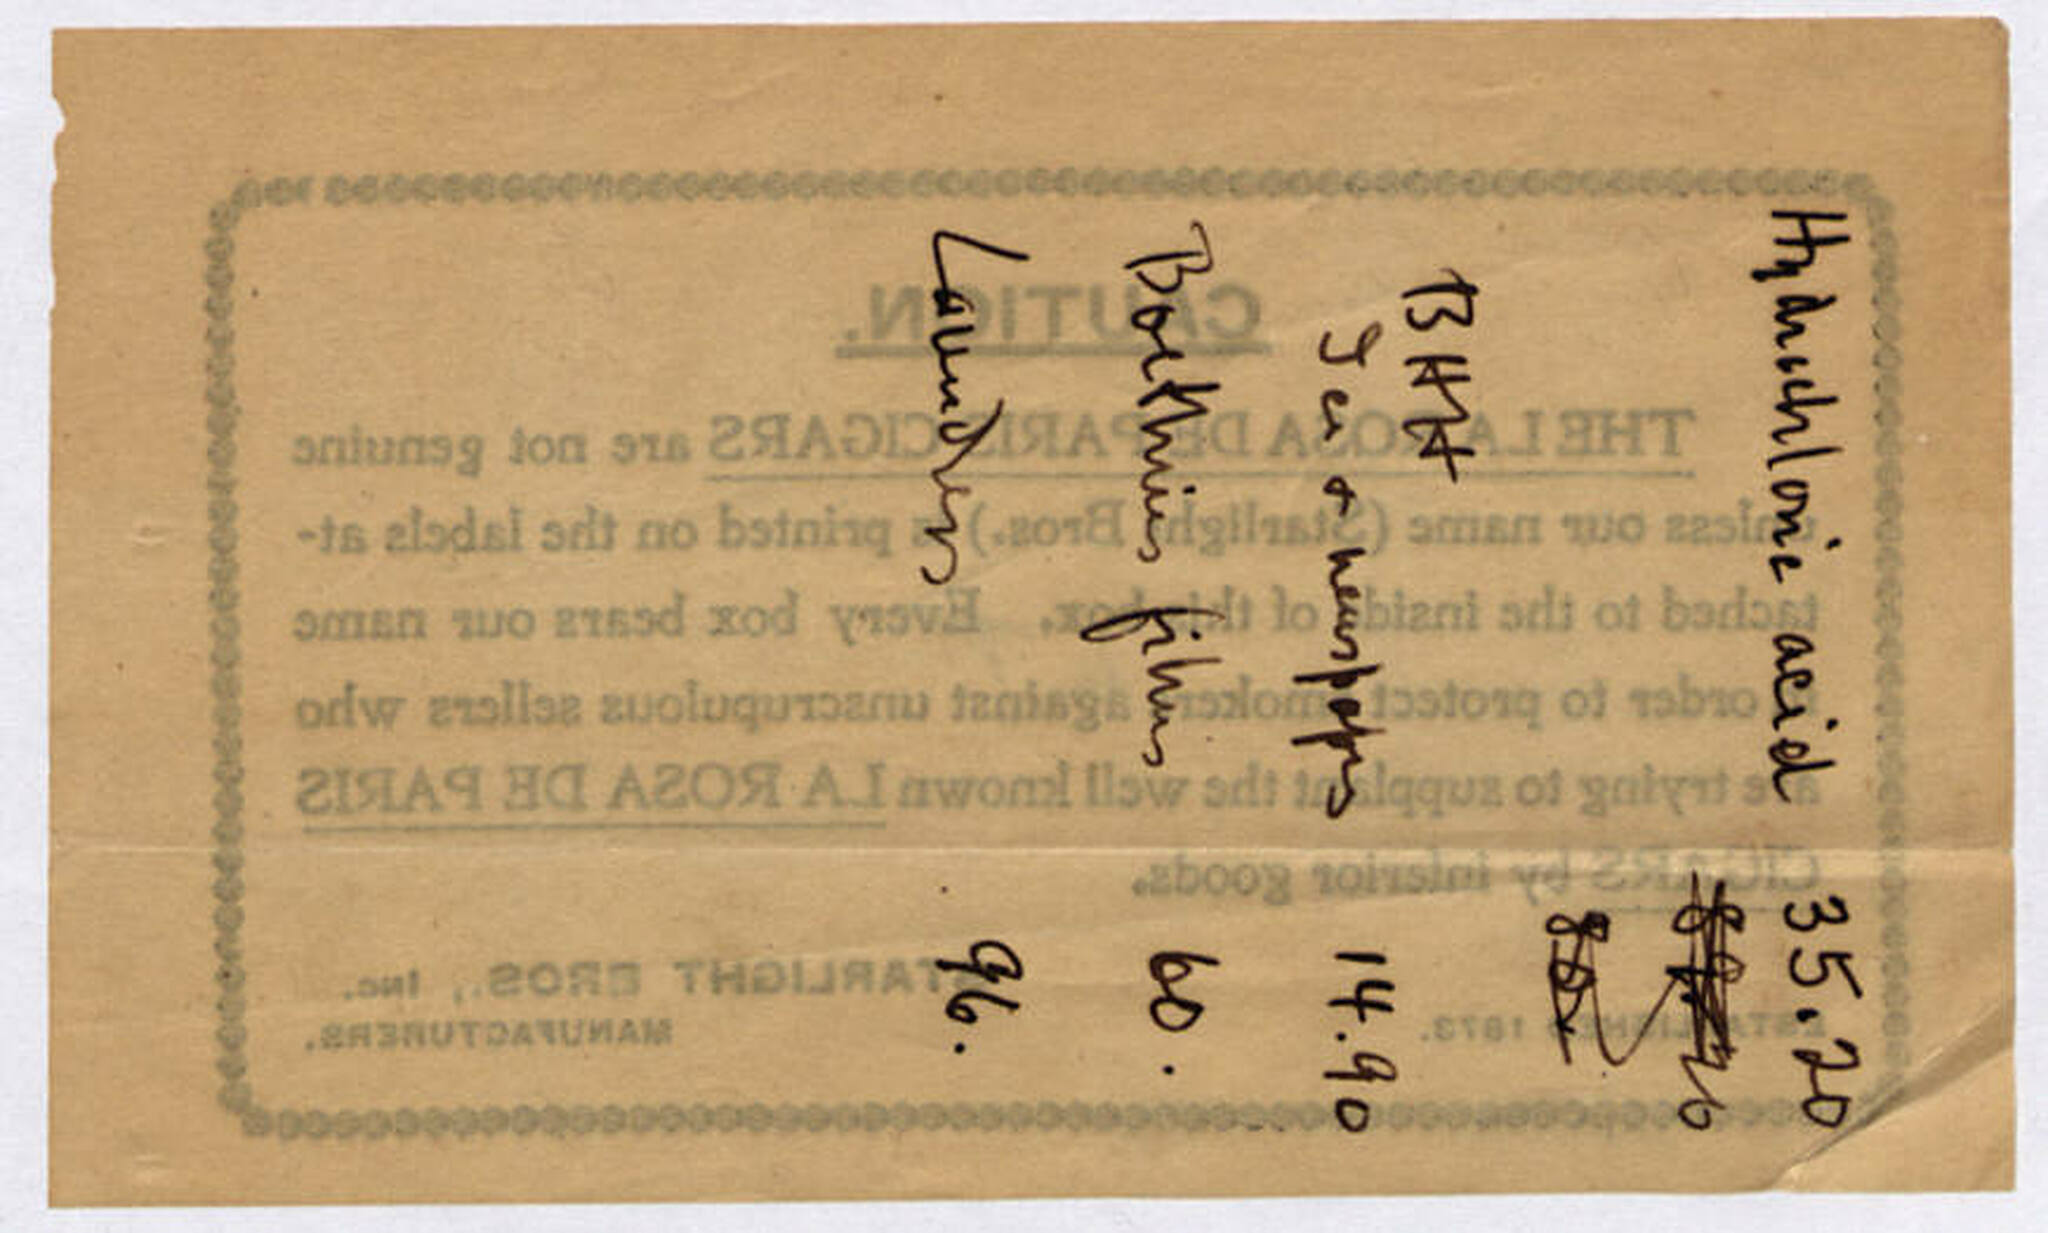 Hydrochloric acid 35.20
BHH
Tea + newspapers 14.90
Boethius films 60.
Laundress 96.
CAUTION.
THE LA ROSA DE PARIS CIGARS are not genuine
unless our name (Starlight Bros.) is printed on the labels at-
tached to the inside of this box. Every box bears our name
in order to protect smokers against unscrupulous sellers who
are trying to supplant the well known LA ROSA DE PARIS
CIGARS by inferior goods.
ESTABLISHED 1873. STARLIGHT BROS., Inc.
MANUFACTURERS.